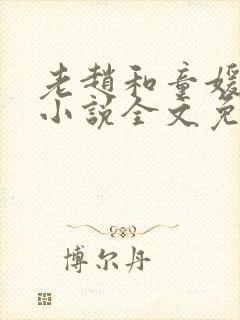 老趙和童媛
小說全文免
博尔丹